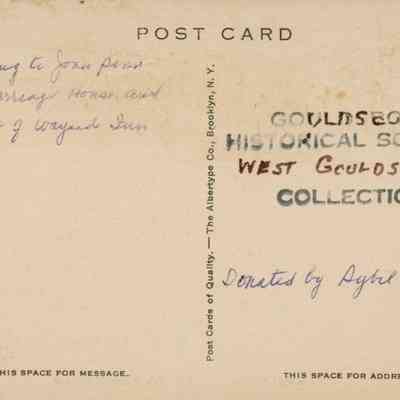 POST CARD
ng to Joan Penn
arriage House and
of Wayside Inn
Post Cards of Quality. — The Albertype Co., Brooklyn, N. Y.
GOULDSBO
HISTORICAL SO
WEST GOULDS
COLLECTIO
Donated by Aybil
HIS SPACE FOR MESSAGE.
THIS SPACE FOR ADDRE